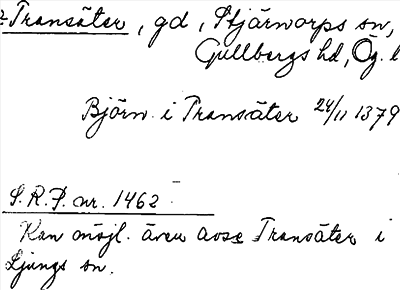 Transäter, gd, Stjärnorps sn,
Gullbergs hd, Ög. l
Björn i Transäter 24/11 1379
S.R.P. nr. 1462
Kan möjl. även avse Transäter i
Ljungs sn.